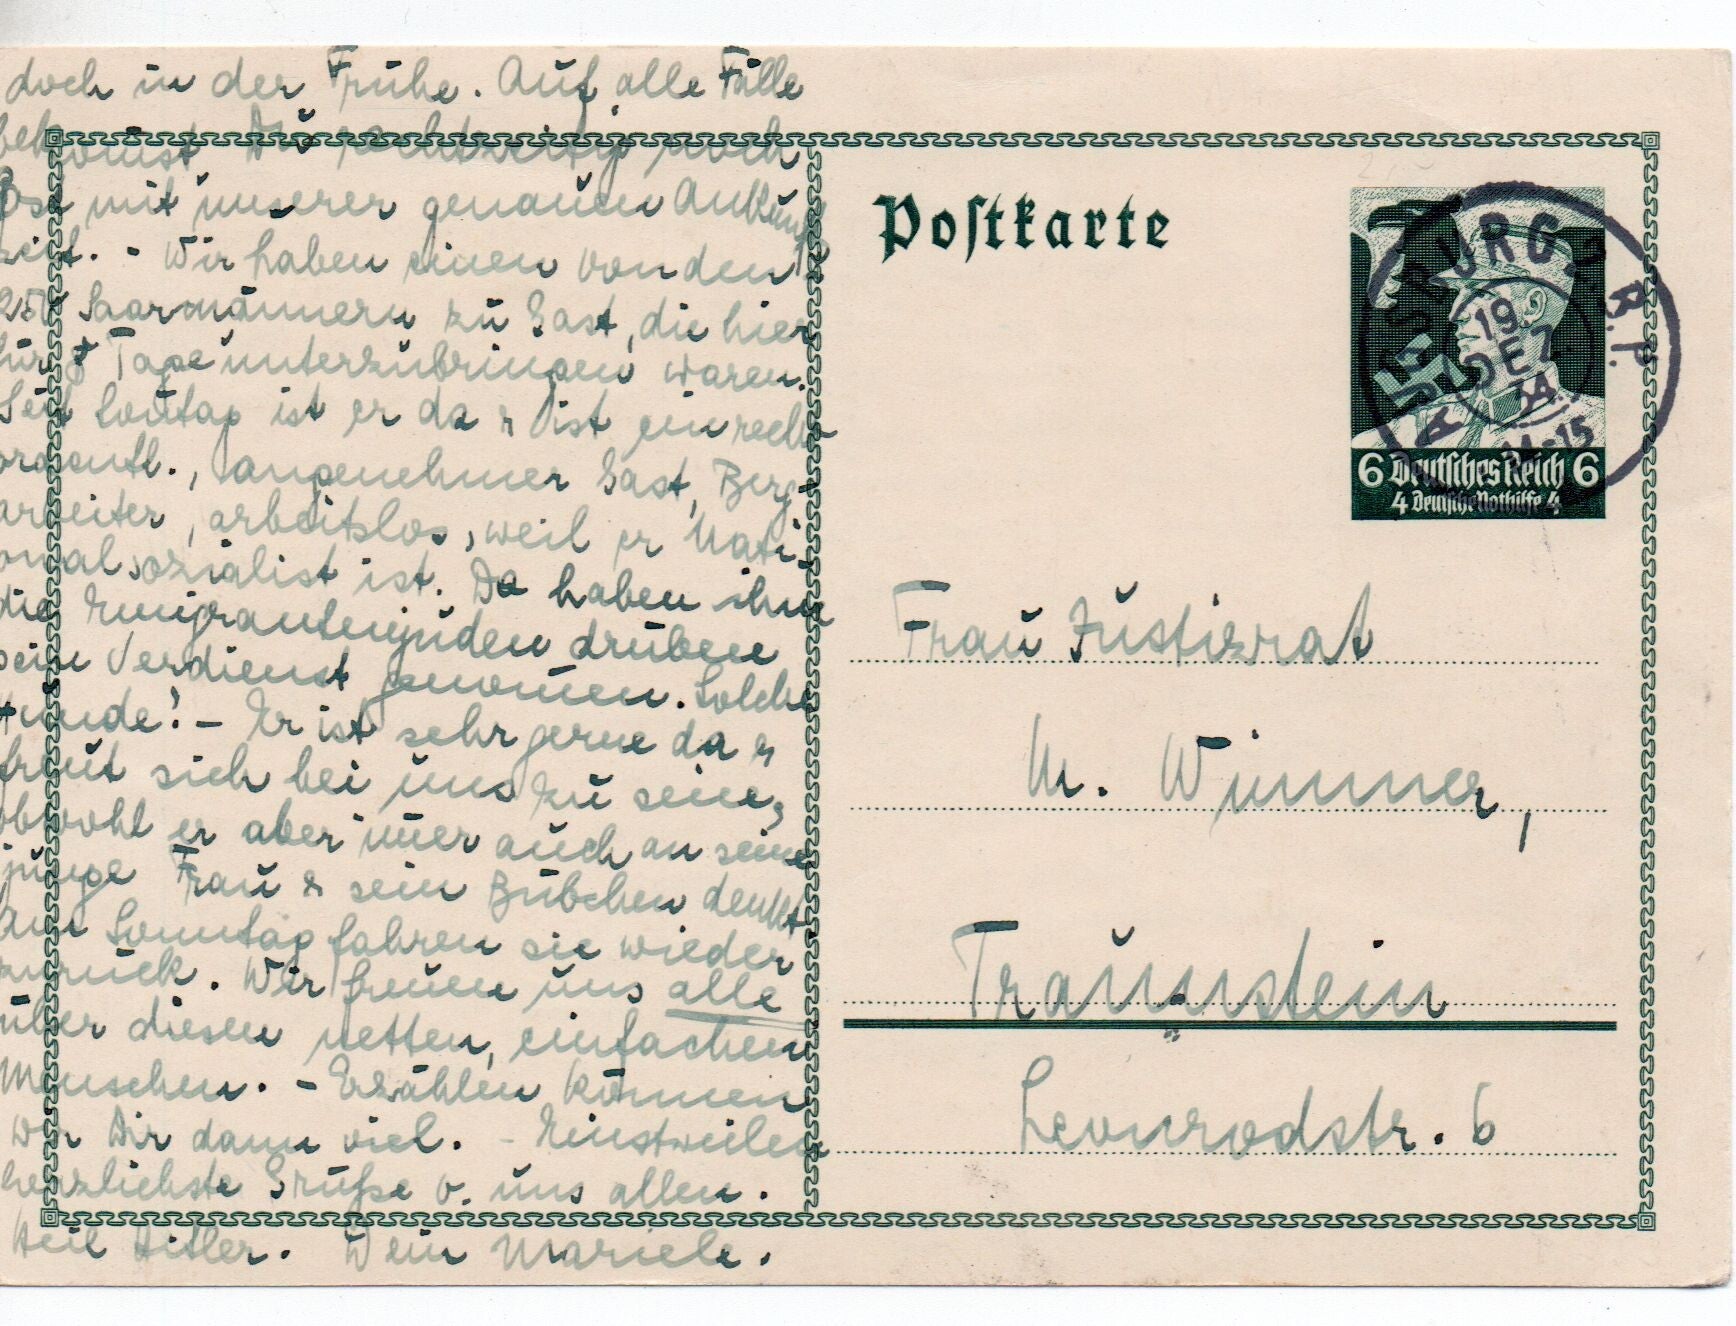 doch in der Frühe. Auf alle Fälle
bekom̅st Du rechtzeitig noch
mit unserer genauen Ankunfts
zeit. - Wir haben einen von den
250 Saarmännern zu Gast, die hier
für 8 Tage unterzubringen waren.
Seit Son̅tag ist er da & ist ein recht
ordentl., angenehmer Gast, Berg-
arbeiter, arbeitslos, weil er Nati-
onalsozialist ist. Da haben ihm
die Emigrantenjuden drüben
sein Verdienst genom̅en. Solche
Hunde! - Er ist sehr gerne da &
freut sich bei uns zu sein,
obwohl er aber im̅er auch an seine
junge Frau & sein Bübchen denkt.
Am Sonntag fahren sie wieder
zurück. Wir freuen uns alle
über diesen netten, einfachen
Menschen. - Erzählen können
wir Dir dann viel. - Einstweilen
herzlichste Grüße v. uns allen.
Heil Hitler. Dein Mariele.
Postkarte
AUGSBURG 2 B.P.
19.
DEZ
34.
14-15
6 Deutsches Reich 6
4 Deutsche Nothilfe 4
Frau Justizrat
M. Wimmer,
Traunstein
Leonrodstr. 6